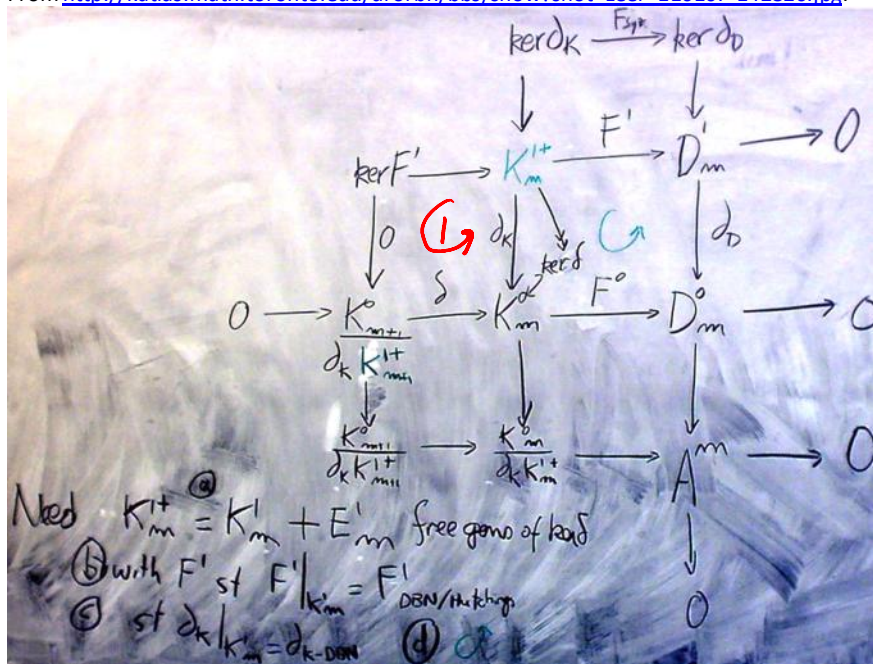 ker ∂_K —F_syz→ ker ∂_D
ker F' → K_m^{1+} —F'→ D'_m → 0
0 ① ∂_K ∂_D
ker δ
0 → K°_{m+1} / ∂_K K^{1+}_{m+1} —δ→ K°_m —F°→ D°_m → 0
K°_{m+1} / ∂_K K^{1+}_{m+1} → K°_m / ∂_K K_m^{1+} → A^m → 0
0
Need K_m^{1+} ⓐ= K'_m + E'_m free gens of ker δ
ⓑ with F' st F'|_{K'_m} = F'_{DBN/Hutchings}
ⓒ st ∂_K|_{K'_m} = ∂_{K-DBN} ⓓ